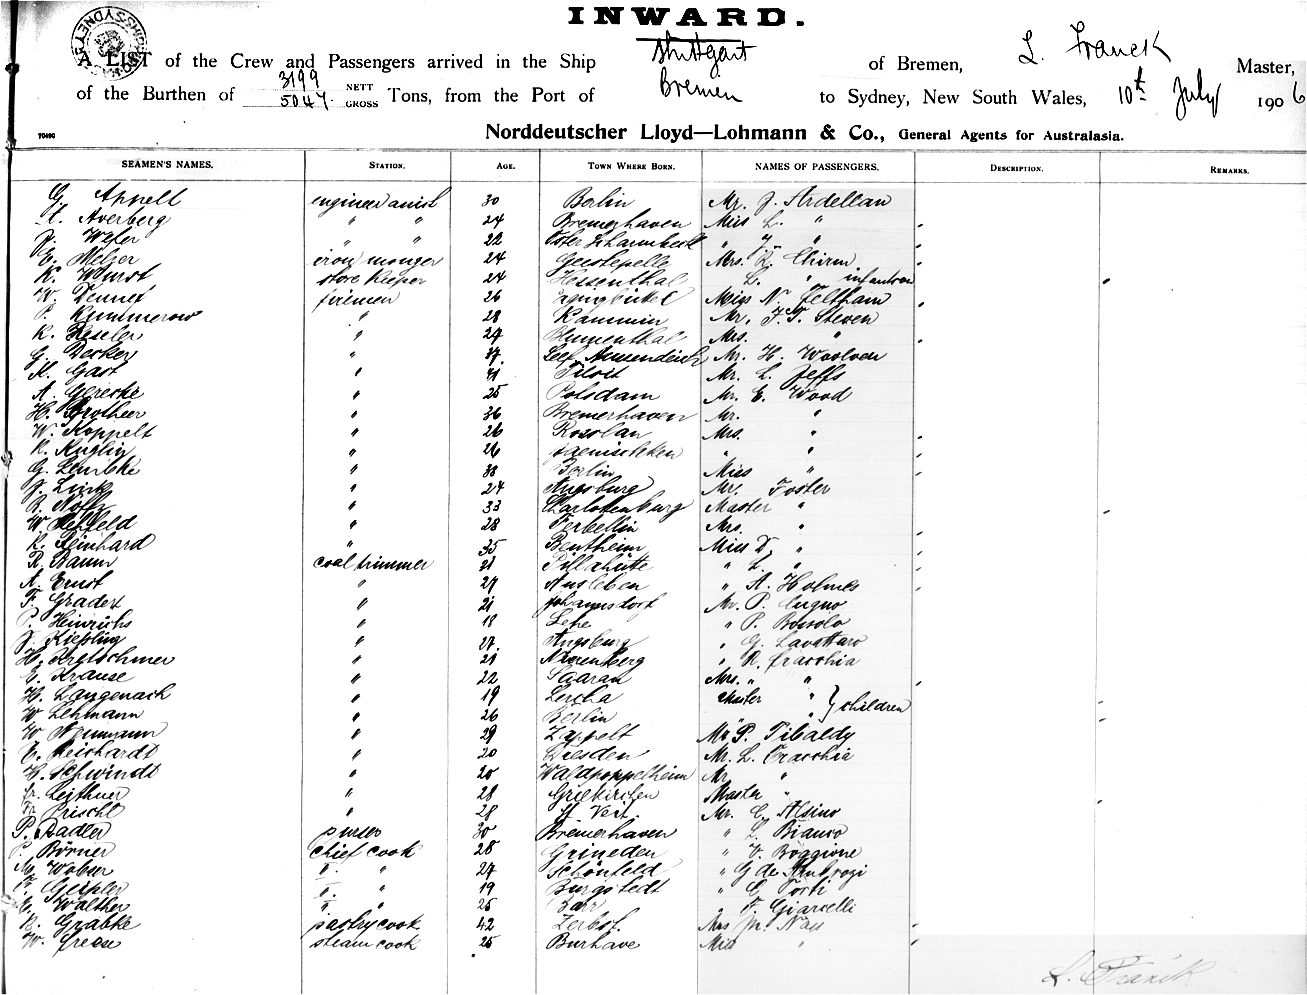 INWARD.
A LIST of the Crew and Passengers arrived in the Ship Stuttgart of Bremen, L. Franck Master,
of the Burthen of 3199 NETT 5047 GROSS Tons, from the Port of Bremen to Sydney, New South Wales, 10th July 1906
Norddeutscher Lloyd—Lohmann & Co., General Agents for Australasia.
SEAMEN'S NAMES. STATION. AGE. TOWN WHERE BORN. NAMES OF PASSENGERS. DESCRIPTION. REMARKS.
G. Appelt engineer assist 30 Berlin Mr. J. Ardellan
Averberg " " 24 Bremerhaven Miss L. "
Wefer " " 22 Osterscharmbeck " J. "
E. Melzer iron monger 24 Geestepelle Mrs. Chirm
K. Wurst store keeper 24 Hessenthal L. " infant son
W. Dennet firemen 26 Miss N. Feltham
Kummerow " 28 Kammin Mr. F. T. Steven
K. Keseler " 24 Blumenthal Mrs. "
G. Decker " 37 Mr. H. Woolven
K. Gast " 41 Tilsit Mr. L. Jeffs
A. Gericke " 25 Potsdam Mr. E. Wood
H. Grotheer " 36 Bremerhaven Mr. "
W. Koppelt " 26 Rosslau Mrs. "
K. Kuglin " 26 " "
G. Lembke " 38 Berlin Miss "
Link " 24 Augsburg Mr. Foster
Noll " 33 Charlottenburg Master "
W. Rehfeld " 28 Ferbellin Mrs. "
K. Reinhard " 35 Bentheim Miss D. "
R. Baum coal trimmer 21 Pillahütte " L. "
A. Ernst " 27 Ausleben " A. Holmes
F. Gradert " 21 Johannsdorf Mr. P. Cugno
P. Heinrichs " 18 Lehe " P. Bossolo
Kiessling " 27 Augsburg " G. Lavottaro
H. Kretschmer " 21 Nürenberg " R. Cracchia
Krause " 22 Saaran Mrs. " "
H. Langenach " 19 Lercha Master " } children
W. Lehmann " 26 Berlin "
W. Neumann " 29 Zappelt Mr P. Tibaldy
E. Reichardt " 20 Dresden Mr. L. Cracchia
H. Schwindt " 20 Waldpoppelheim Mr "
Fr. Leithner " 28 Griekirchen Master "
Fr. Prischl " 28 St. Veit Mr. C. Alsino
P. Radler purser 30 Bremerhaven " L. Bianco
Börner chief cook 28 Grineden " V. Boggione
M. Wobser II. " 27 Schönfeld " G de Ambrogi
Geissler II. " 19 Burgstedt " G. Torti
E. Walther II " 25 Barr " F. Giarelli
K. Grabke pastry cook 42 Zerbst. Mrs M. Nass
W. Freese steam cook 25 Burhave Miss "
L. Franck